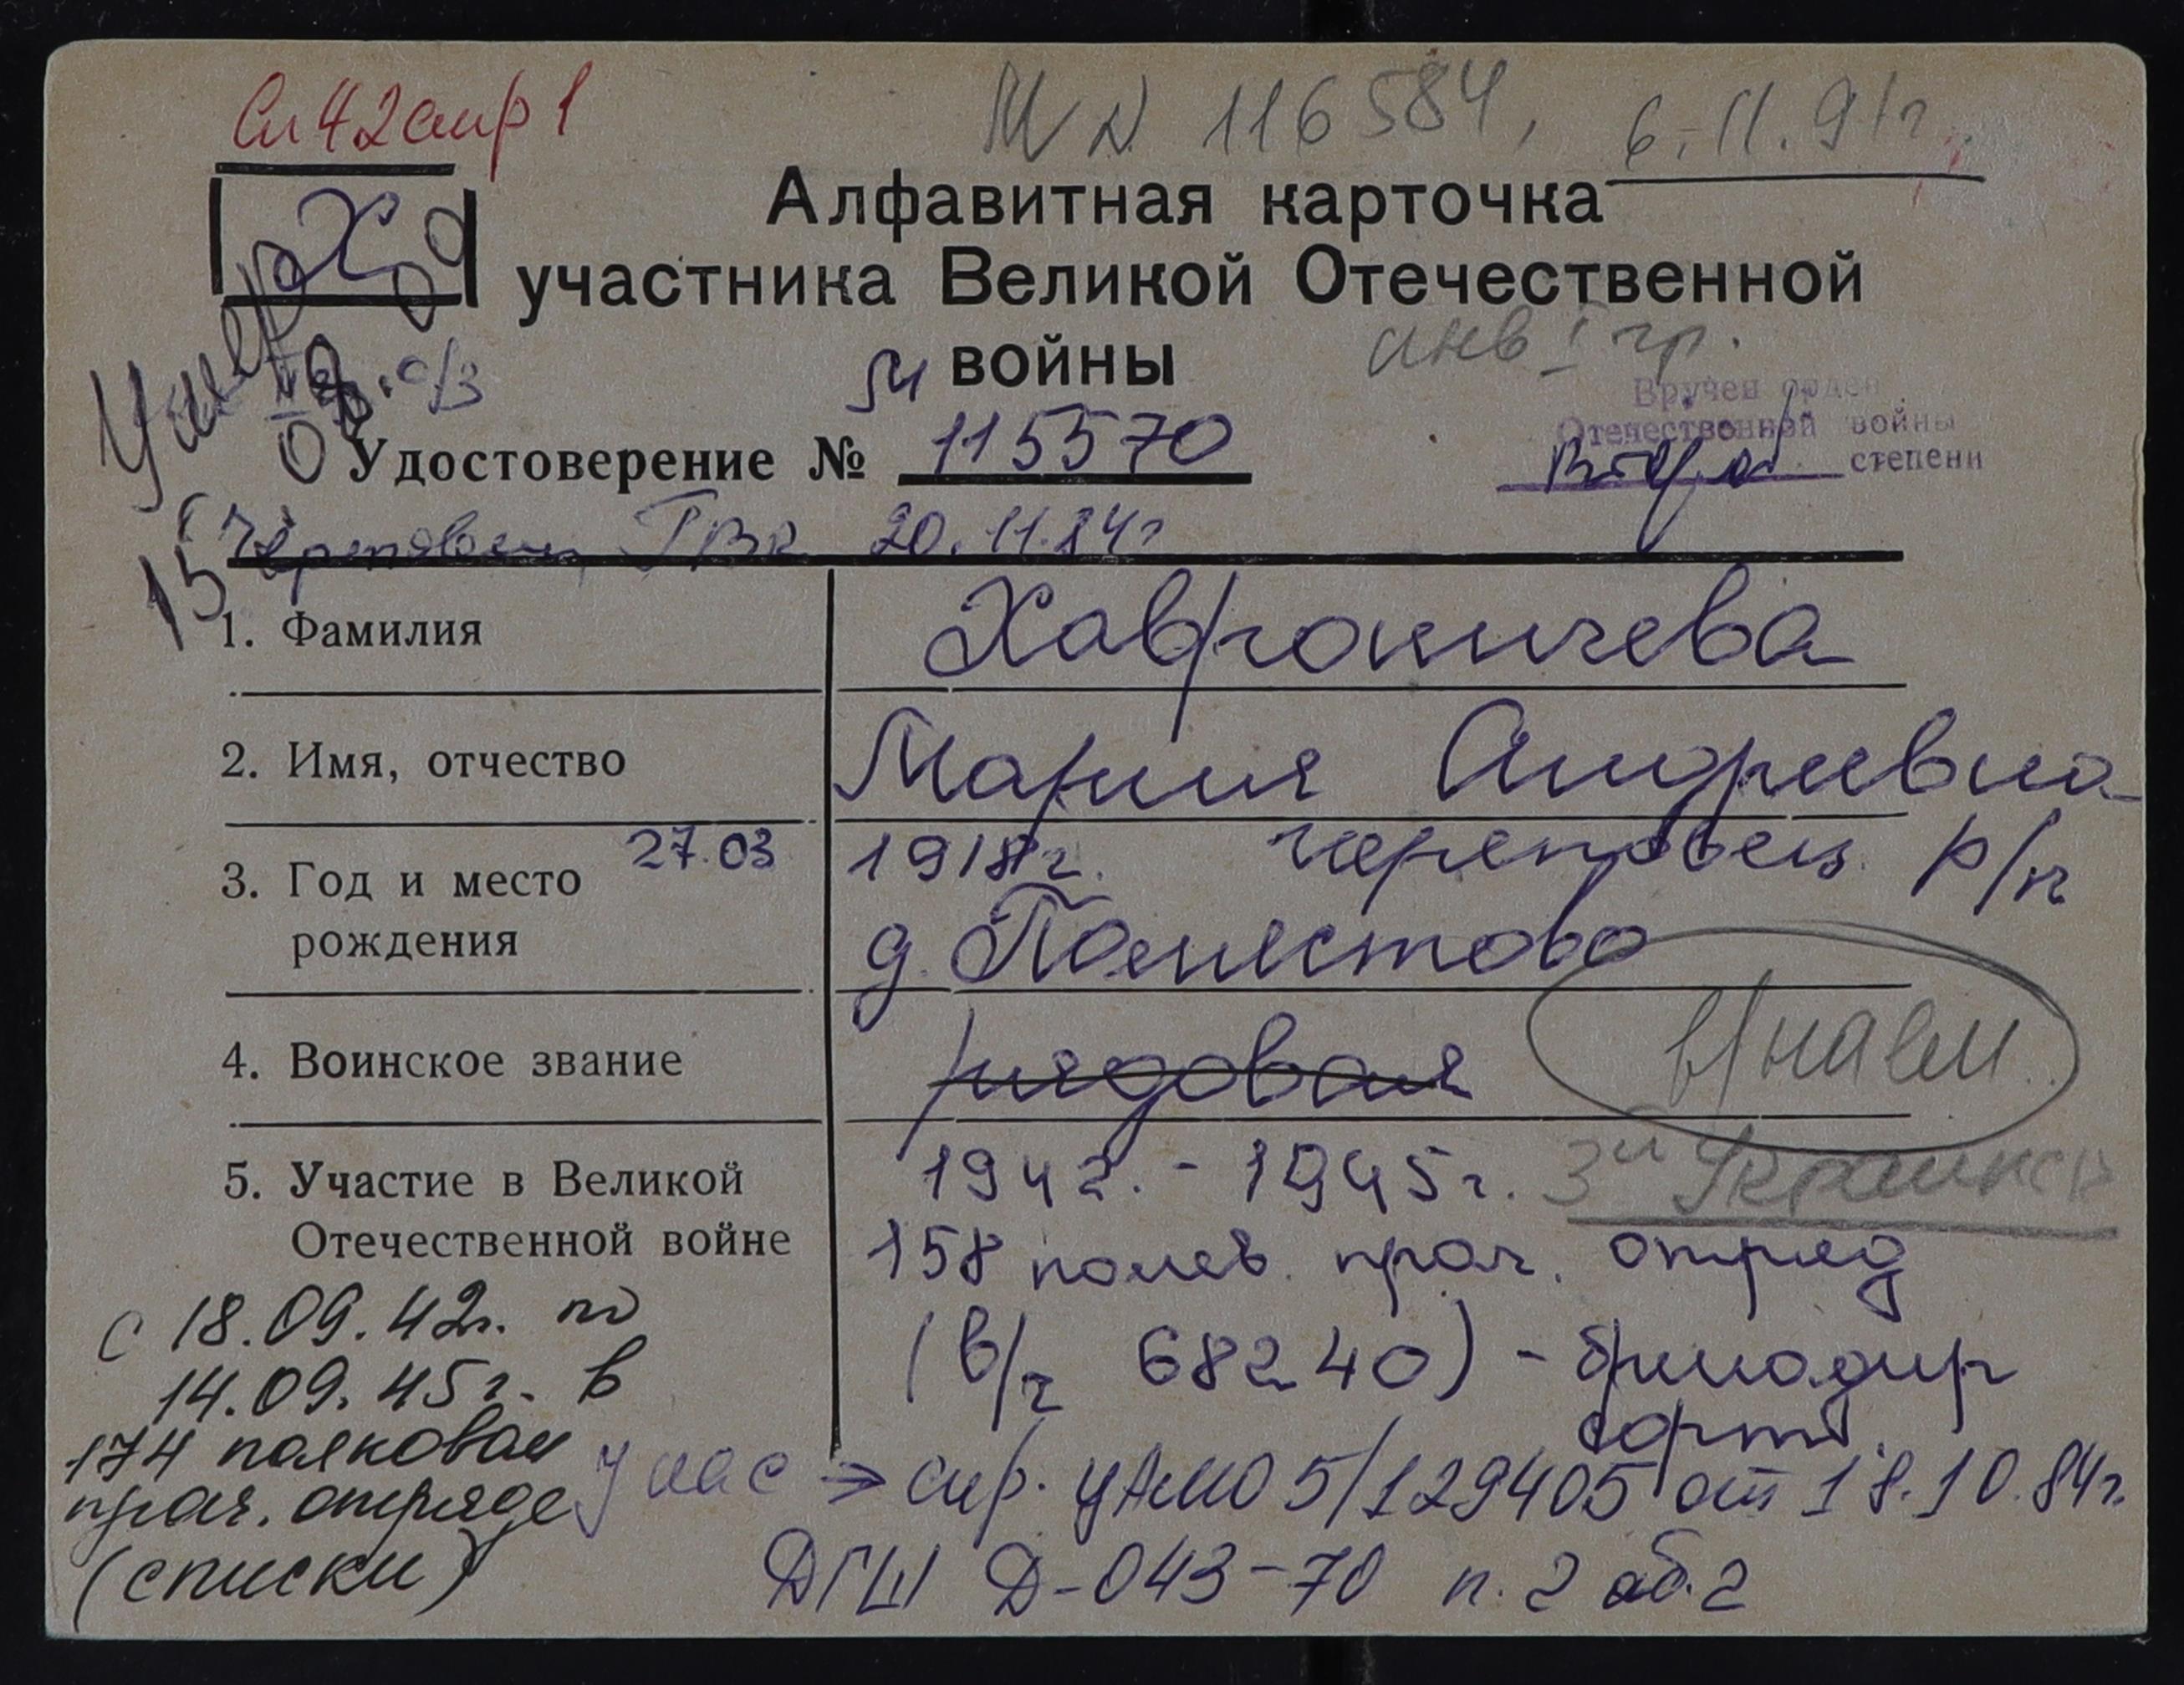 Сп 42 стр 1
М N 116584, 6.11.91г.
Х
Алфавитная карточка
участника Великой Отечественной
войны
инв I гр.
Умерла
09
08.03
15
Вручен орден
Отечественной войны
второй степени
Удостоверение № 115570
Череповец ГВК 20.11.84г
1. Фамилия Хаврошичева
2. Имя, отчество Мария Андреевна
3. Год и место рождения 27.03 1918г. Череповец р/н
д. Помястово
4. Воинское звание рядовая
в/наем.
5. Участие в Великой Отечественной войне
1942 - 1945г. 3й Украинск
158 полев. прач. отряд
(в/ч 68240) - бригадир
сорт.
с 18.09.42г. по
14.09.45г. в
174 полковом
прач. отряде
(списки)
у нас → спр. ЦАМО 5/129405 от 18.10.84г.
ДГШ Д-043-70 п. 2 аб. 2